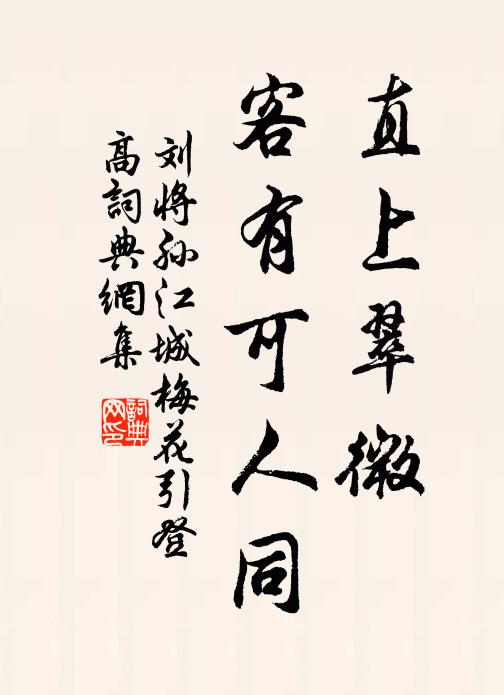 直上翠微
客有可人同
刘将孙江城梅花引登
高詞典網集
詞典
网印